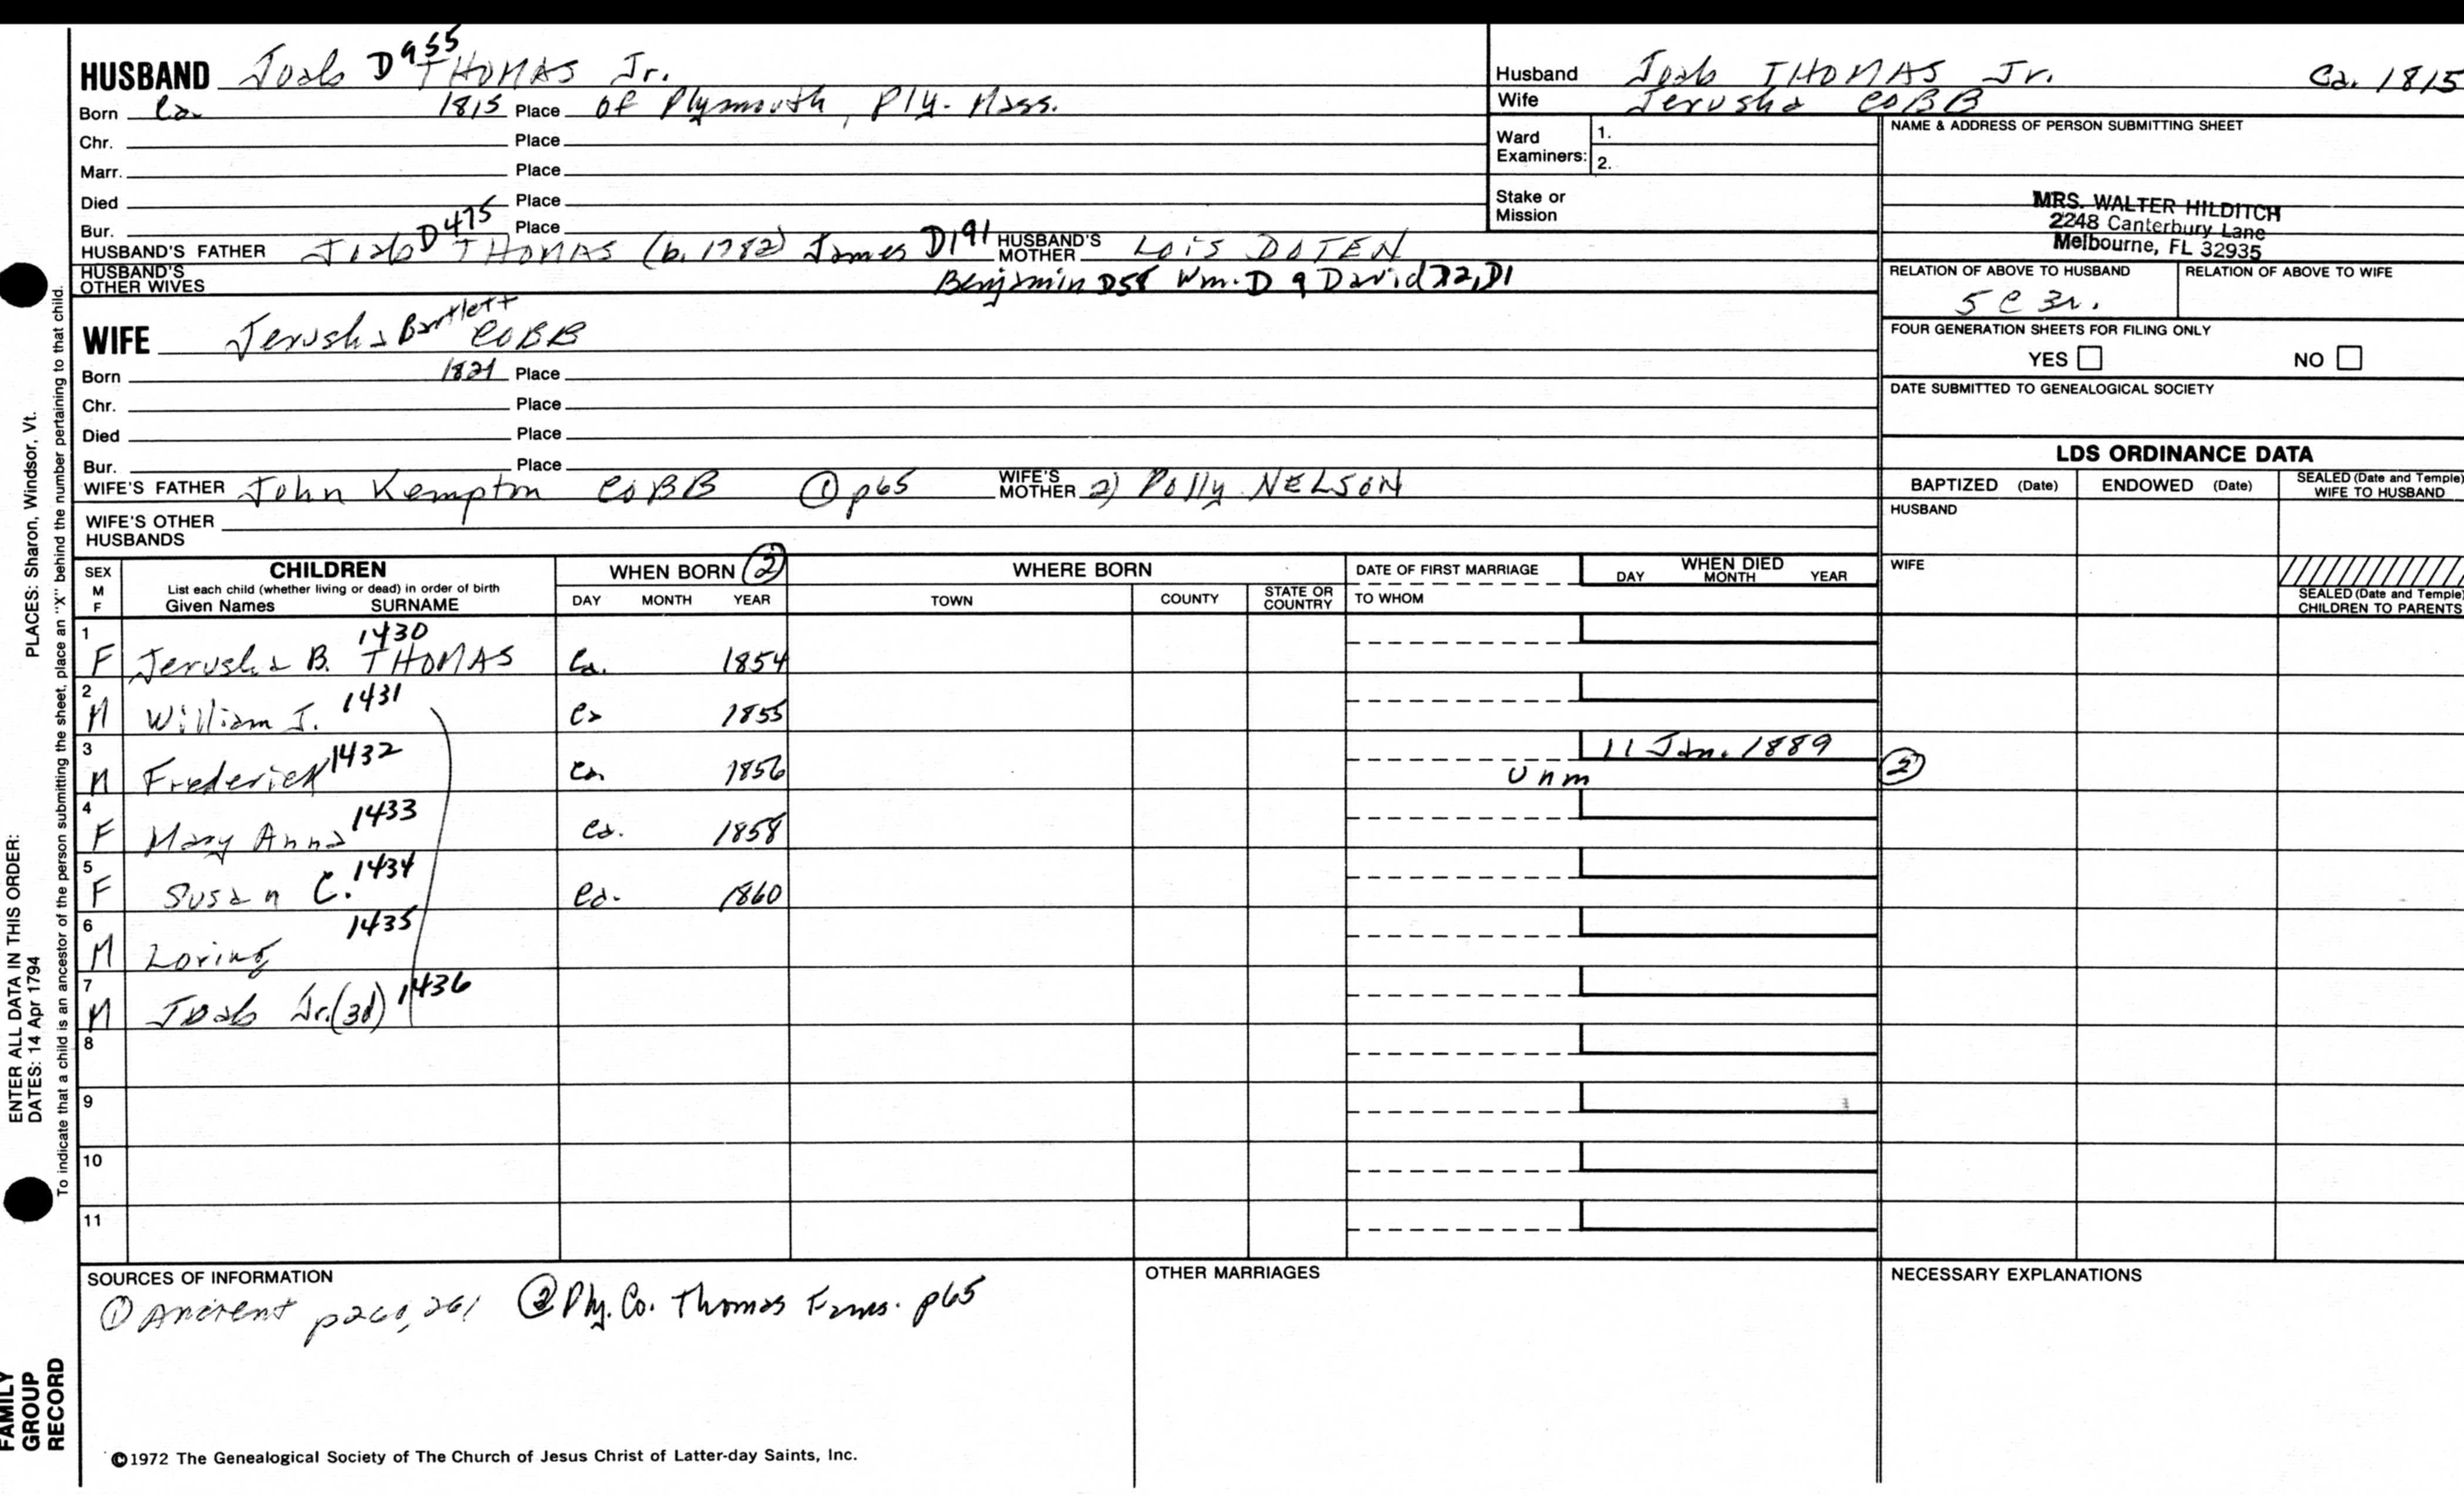 HUSBAND Joab D955 THOMAS Jr.
Born Ca. 1815 Place of Plymouth, Ply. Mass.
Chr. Place
Marr. Place
Died Place
Bur. Place
HUSBAND'S FATHER Joab D475 THOMAS (b. 1782) James D191 HUSBAND'S MOTHER Lois DOTEN
HUSBAND'S OTHER WIVES Benjamin D58 Wm. D9 David D2, D1
WIFE Jerusha Bartlett COBB
Born 1821 Place
Chr. Place
Died Place
Bur. Place
WIFE'S FATHER John Kempton COBB ① p65 WIFE'S MOTHER 2) Polly NELSON
WIFE'S OTHER HUSBANDS
Husband Joab THOMAS Jr. Ca. 1815
Wife Jerusha COBB
Ward Examiners: 1.
2.
Stake or Mission
NAME & ADDRESS OF PERSON SUBMITTING SHEET
MRS. WALTER HILDITCH
2248 Canterbury Lane
Melbourne, FL 32935
RELATION OF ABOVE TO HUSBAND RELATION OF ABOVE TO WIFE
5 C 3r.
FOUR GENERATION SHEETS FOR FILING ONLY
YES NO
DATE SUBMITTED TO GENEALOGICAL SOCIETY
LDS ORDINANCE DATA
BAPTIZED (Date) ENDOWED (Date) SEALED (Date and Temple) WIFE TO HUSBAND
HUSBAND
WIFE
SEALED (Date and Temple) CHILDREN TO PARENTS
SEX M F CHILDREN WHEN BORN ② WHERE BORN DATE OF FIRST MARRIAGE WHEN DIED
List each child (whether living or dead) in order of birth
Given Names SURNAME DAY MONTH YEAR TOWN COUNTY STATE OR COUNTRY TO WHOM DAY MONTH YEAR
1 F Jerusha B. THOMAS 1430 Ca. 1854
2 M William J. 1431 Ca 1855
3 M Frederick 1432 Ca. 1856 Unm 11 Jan. 1889 ②
4 F Mary Anna 1433 Ca. 1858
5 F Susan C. 1434 Ca. 1860
6 M Loring 1435
7 M Joab Jr. (3d) 1436
8
9
10
11
SOURCES OF INFORMATION
① Ancient p260, 261 ② Ply. Co. Thomas Fams. p65
OTHER MARRIAGES
NECESSARY EXPLANATIONS
©1972 The Genealogical Society of The Church of Jesus Christ of Latter-day Saints, Inc.
FAMILY
GROUP
RECORD
ENTER ALL DATA IN THIS ORDER:
DATES: 14 Apr 1794
PLACES: Sharon, Windsor, Vt.
To indicate that a child is an ancestor of the person submitting the sheet, place an "X" behind the number pertaining to that child.